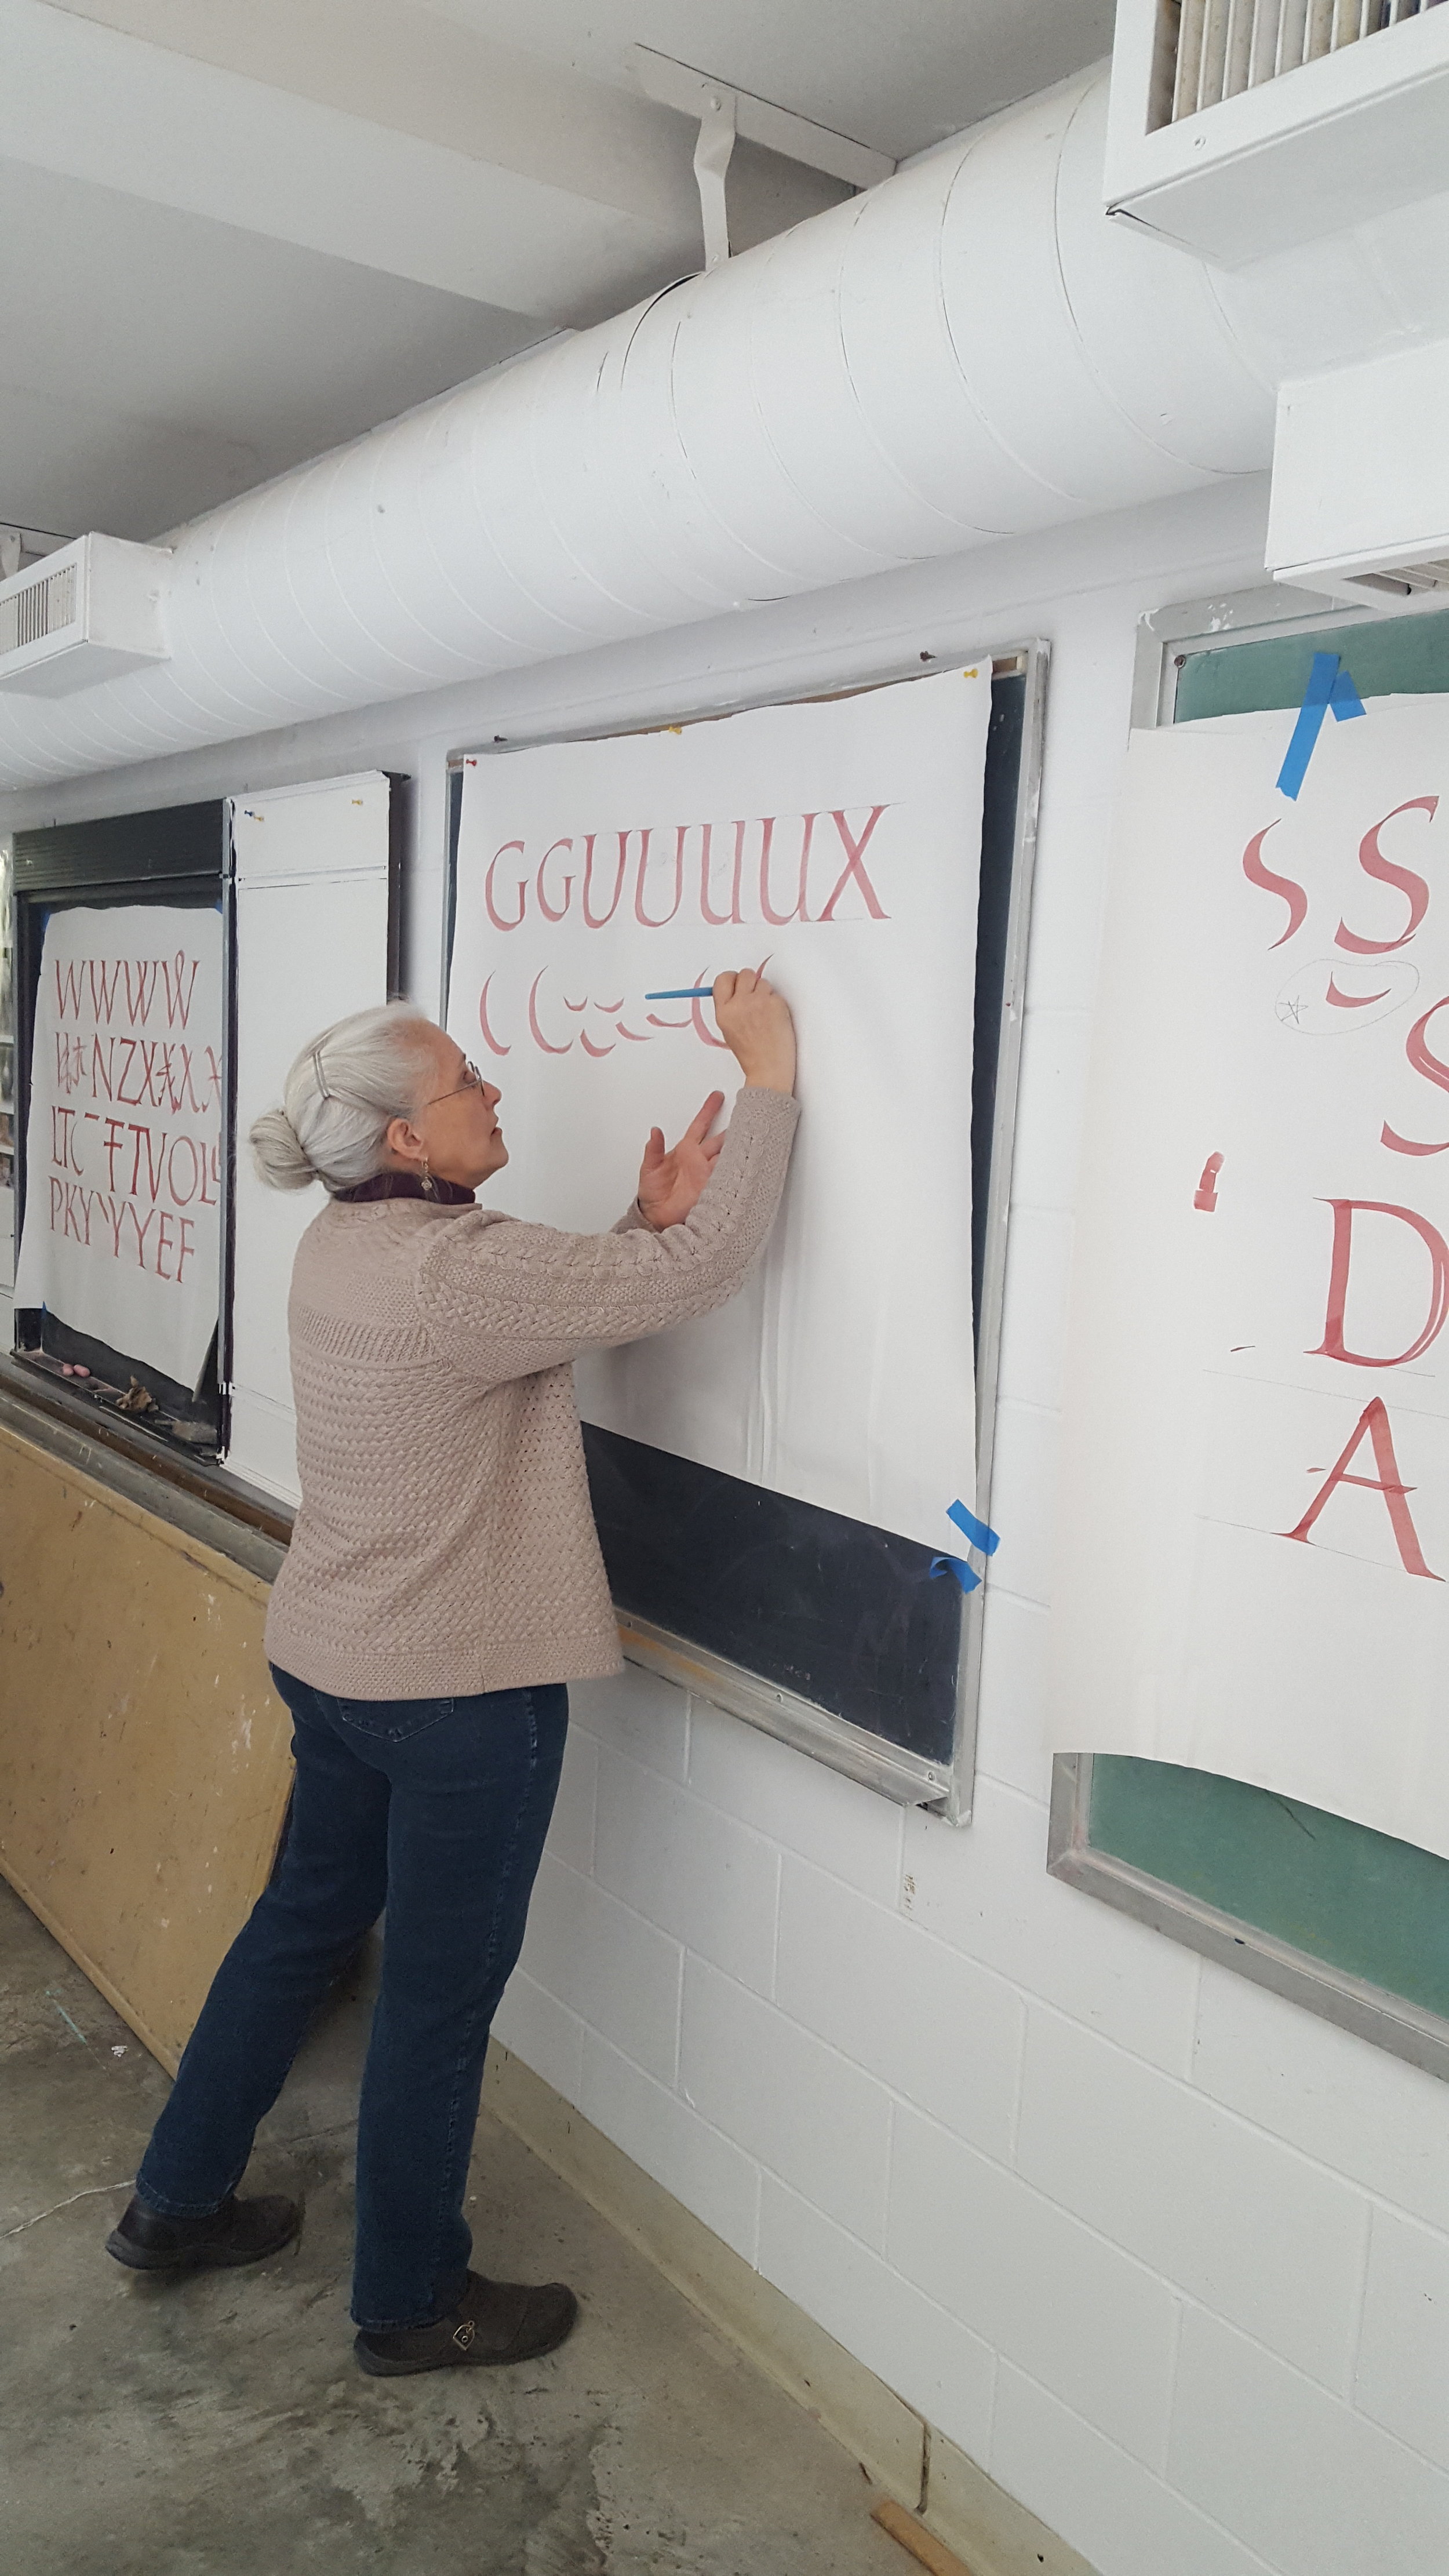 WWWW
NZXXXX
LTC FTVOL
PKYYYEF
GGUUUUX
S
S
D
A